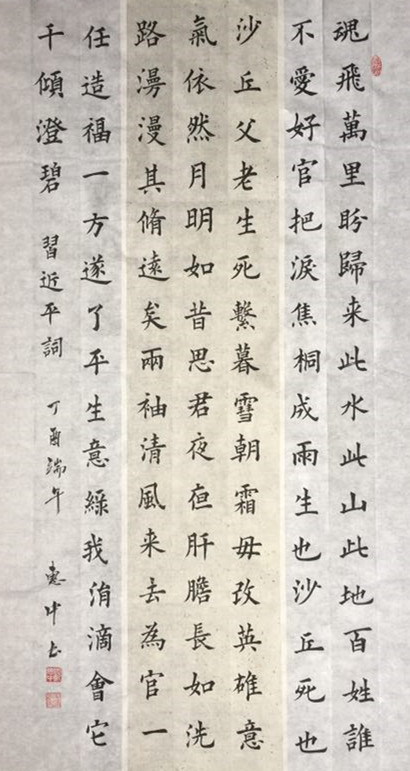 魂飛萬里盼歸来此水此山此地百姓誰
不愛好官把淚焦桐成雨生也沙丘死也
沙丘父老生死繫暮雪朝霜毋改英雄意
氣依然月明如昔思君夜夜肝膽長如洗
路漫漫其脩遠矣兩袖清風来去為官一
任造福一方遂了平生意綠我涓滴會它
千傾澄碧 習近平詞 丁酉端午